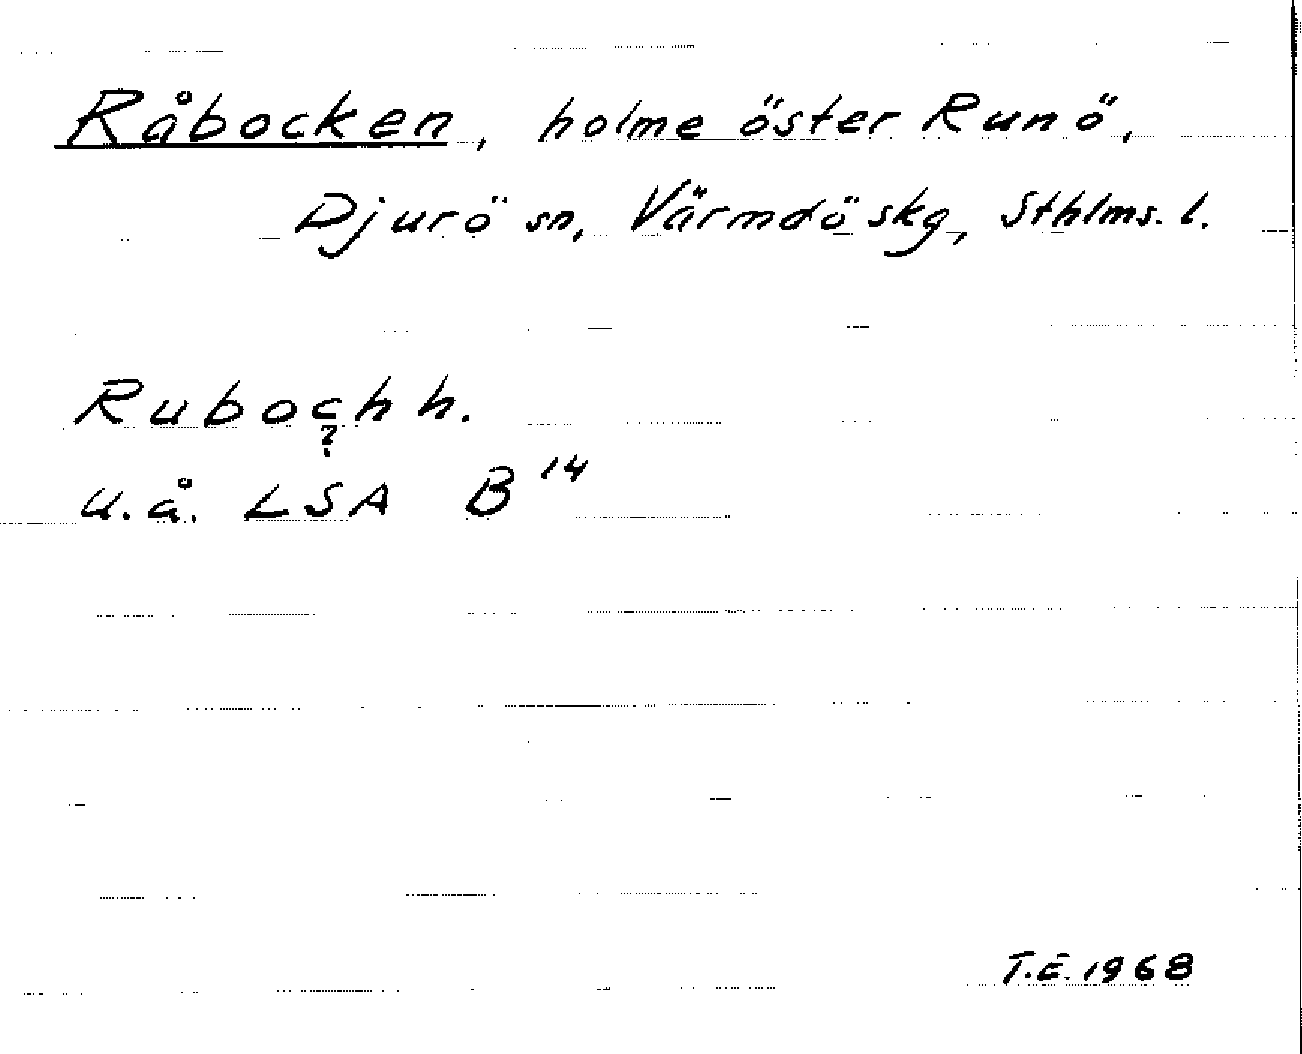 Råbocken, holme öster Runö,
Djurö sn, Värmdö skg, Sthlms. l.
Rubochh.
?
u.å. LSA B 14
T.E. 1968